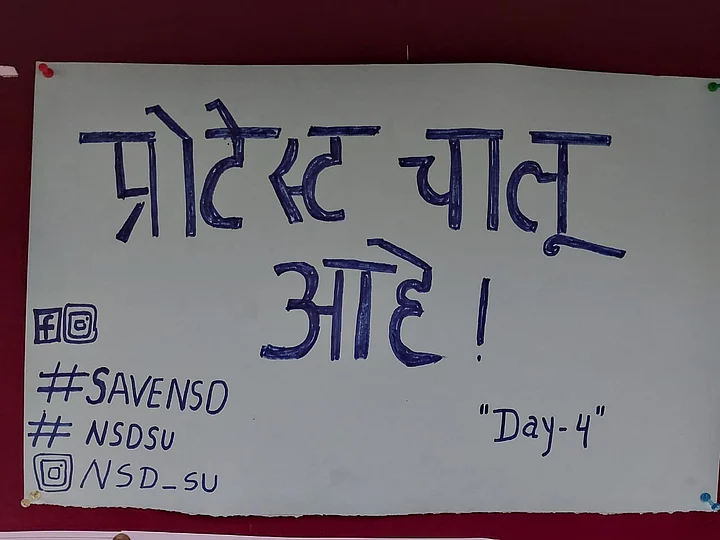 प्रोटेस्ट चालू
आहे !
#SAVENSD
# NSDSU
NSD_SU
"Day-4"